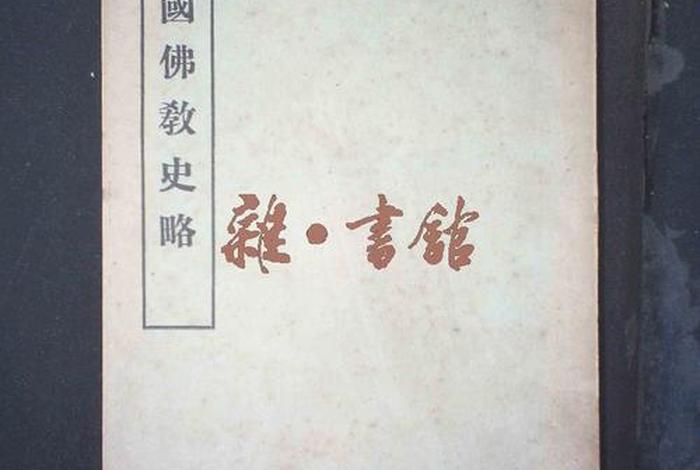 國佛教史略
雜·書館